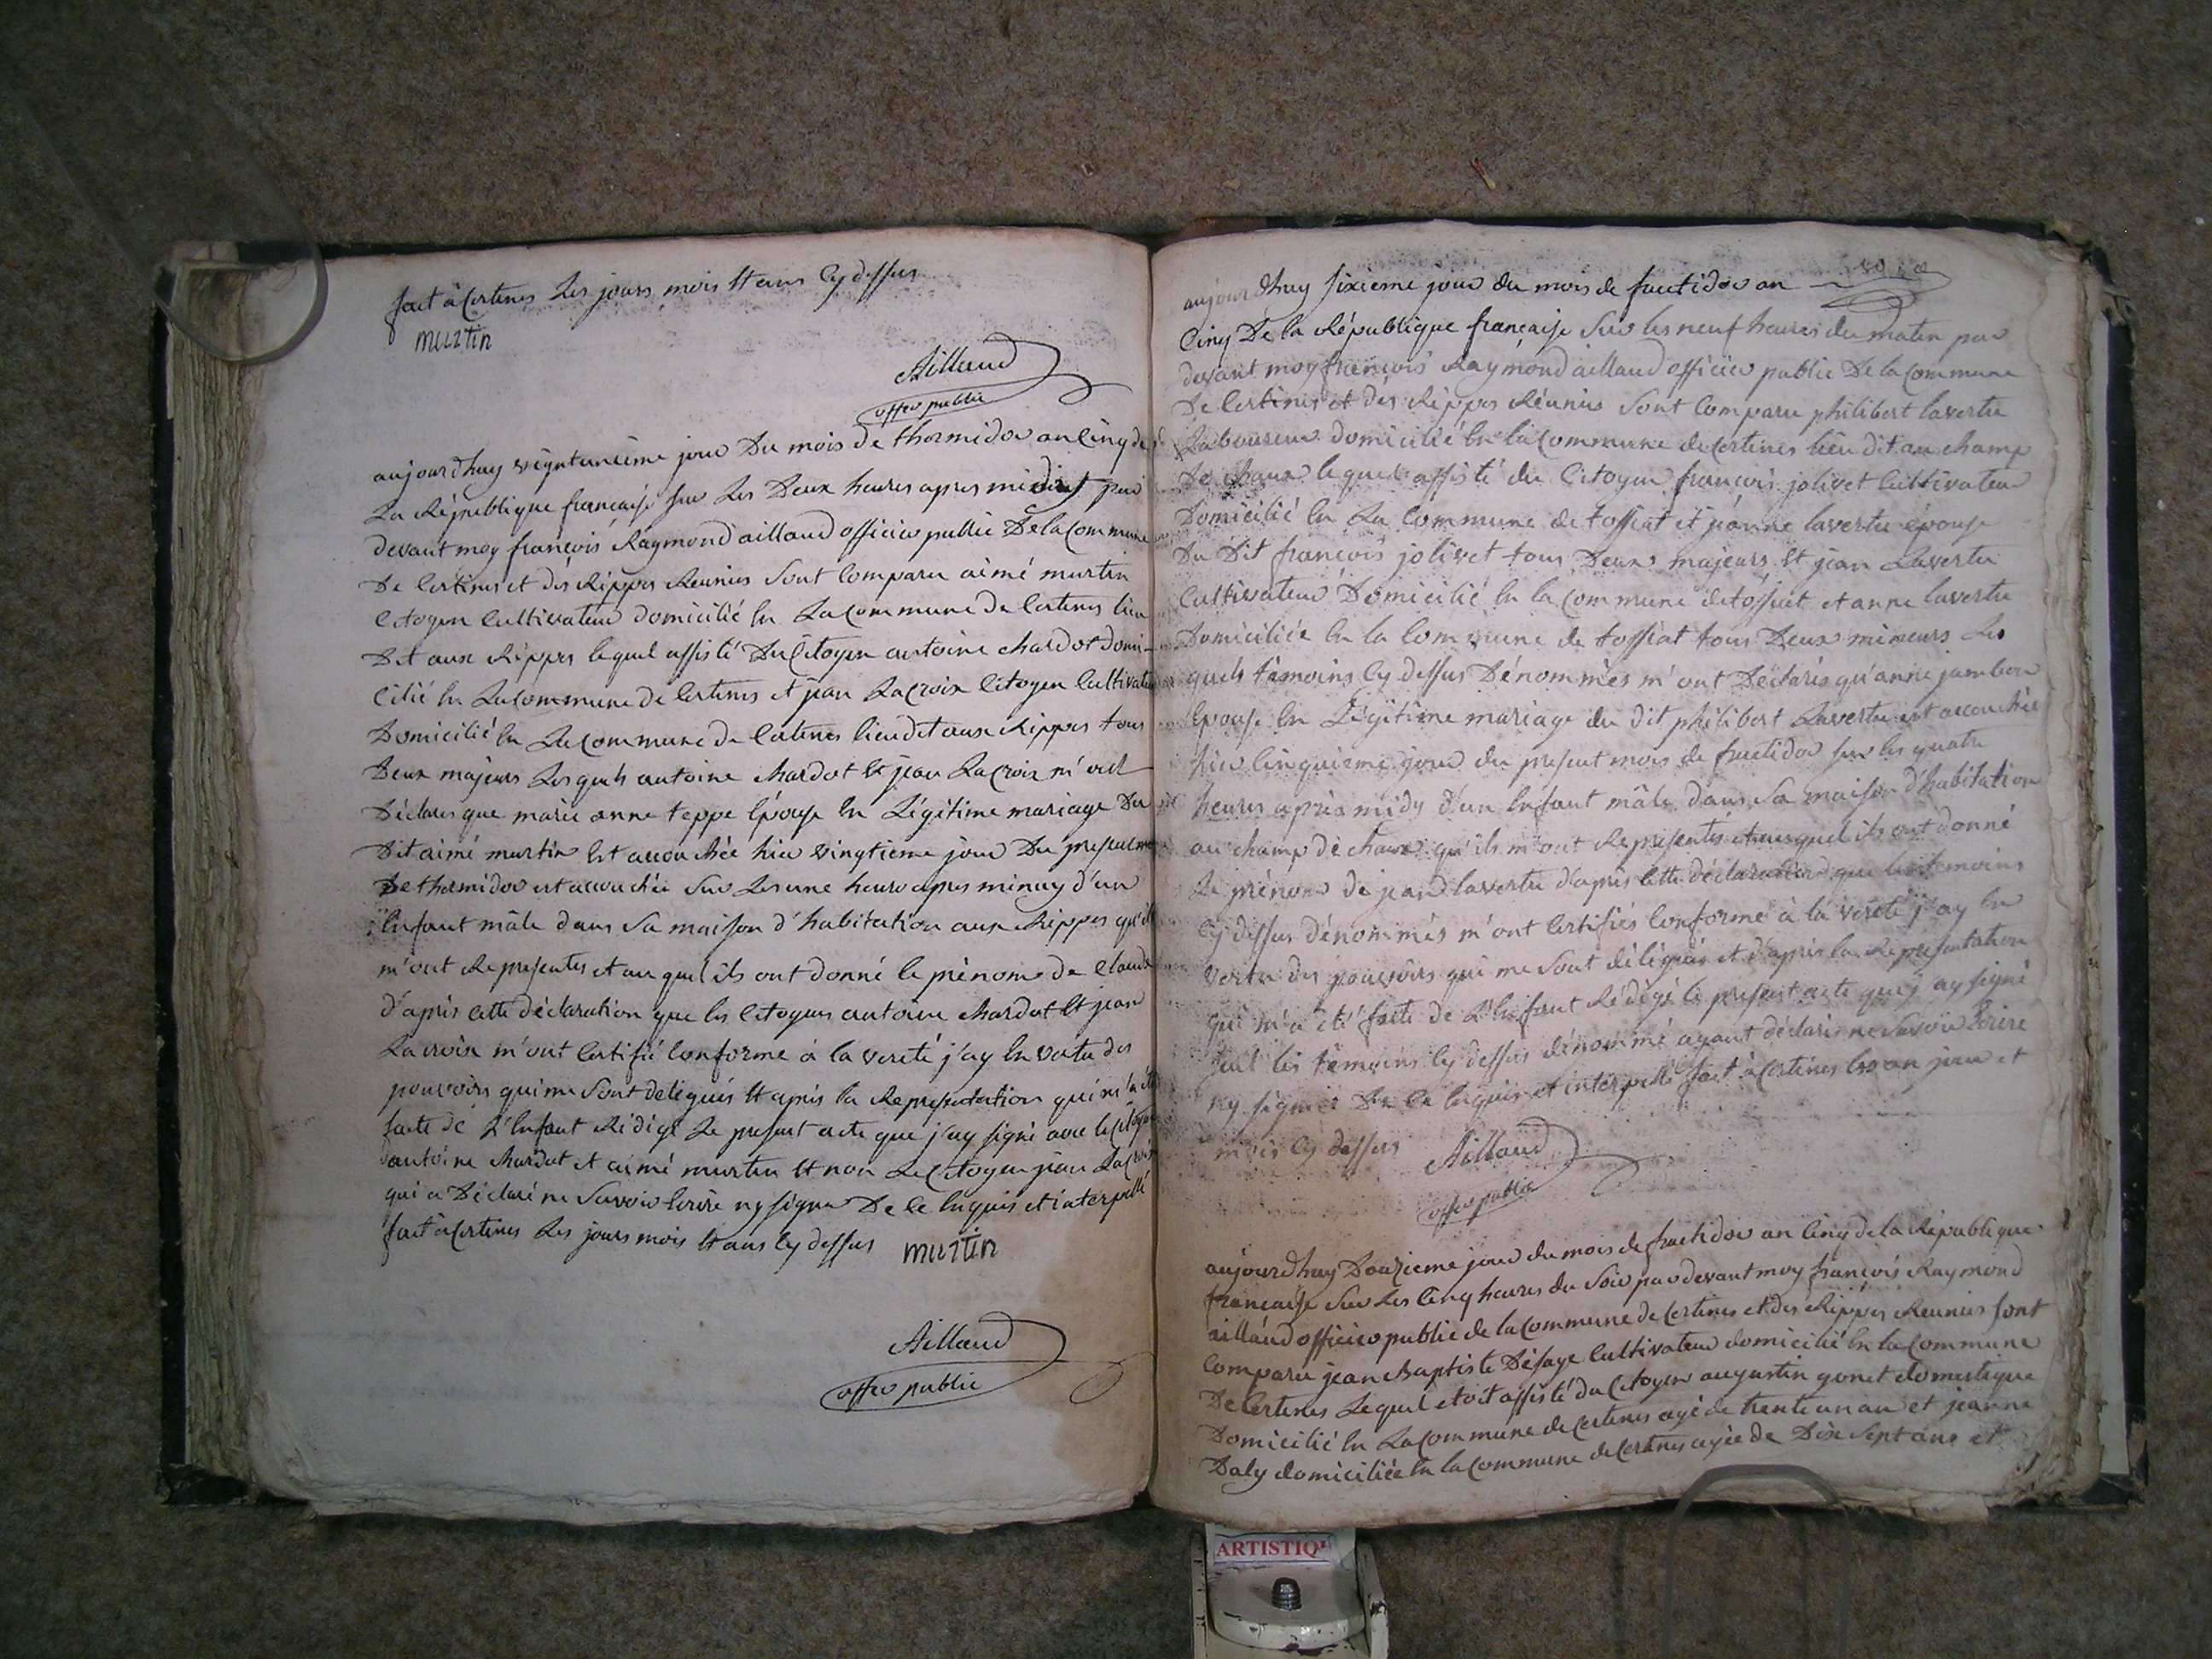 fait à Certines Les jours mois Et ans Cy dessus
martin
Aillaud
offier public
aujourdhuy vingtunième jour Du mois de thermidor an Cinq de
La République française sur Les Deux heures apres midi par
devant moy françois Raymond aillaud officier public De la Commune
De Certines et des Rippes Reunies Sont Comparu aimé martin
Citoyen Cultivateur domicilié En La Commune de Certines lieu
Dit aux Rippes lequel assisté Du Citoyen antoine chardot domi-
cilié En La Commune de Certines et jean Lacroix Citoyen Cultivateur
Domicilié En La Commune de Certines lieu dit aux Rippes tous
Deux majeurs Lesquels antoine chardot Et jean Lacroix m'ont
Déclares que marie anne teppe Epouse En Légitime mariage Du
Dit aimé martin Est accouchée hier vingtieme jour Du present
De thermidor est accouchée Sur Les une heure apres minuy d'un
Enfant mâle dans Sa maison d'habitation aux Rippes qu'ils
m'ont Representes et au quel ils ont donné le prénom de Claude
d'après cette déclaration que les Citoyens antoine chardot Et jean
Lacroix m'ont Certifié Conforme à la vereté j'ay En vertu des
pouvoirs qui me Sont delegués Et après la Representation qui m'a été
faite de L'Enfant Rédigé Le present acte que j'ay signé avec le Citoyen
antoine chardot et aimé martin Et non Le Citoyen jean Lacroix
qui a Déclaré ne Savoir Ecrire ny signer De ce Enquis et interpellé
fait à Certines Les jours mois Et ans Cy dessus martin
Aillaud
offier public
aujourdhuy sixieme jour du mois de fructidor an
Cinq De la République française Sur les neuf heures du matin par
devant moy françois Raymond aillaud officier public De la Commune
De Certines et des Rippes Réunies Sont Comparu philibert lavertu
Laboureur domicilié En la Commune de Certines lieu dit au champ
De chaux lequel assisté du Citoyen françois jolivet Cultivateur
Domicilié En La Commune de tossiat et jeanne lavertu épouse
Du Dit françois jolivet tous Deux majeurs Et jean Lavertu
Cultivateur Domicilié En la Commune de tossiat et anne lavertu
Domiciliée En la Commune de tossiat tous Deux mineurs Les
quels témoins Cy dessus Dénommés m'ont Déclarés qu'anne jambon
Epouse En Légitime mariage du dit philibert Lavertu est accouchée
hier Cinquieme jour du present mois de fructidor sur les quatre
heures après midy d'un Enfant mâle dans Sa maison d'habitation
au champ de chaux qu'ils m'ont Representés et auquel ils ont donné
Le prénom de jean lavertu d'après cette déclaration que les témoins
Cy dessus dénommés m'ont Certifiés Conforme à la vereté j'ay En
vertu des pouvoirs qui me Sont délégués et d'après la Representation
qui m'a été faite de L'Enfant Rédigé le present acte que j'ay signé
seul les témoins Cy dessus dénommé ayant déclaré ne Savoir Ecrire
ny signer De ce Enquis et interpellé fait à Certines Les an jour et
mois Cy dessus Aillaud
offier public
aujourdhuy Douzieme jour du mois de fructidor an Cinq de la République
française Sur Les Cinq heures du Soir par devant moy françois Raymond
aillaud officier public de la Commune de Certines et des Rippes Reunies sont
Comparu jean Baptiste Désaye Cultivateur domicilié En la Commune
De Certines Lequel etoit assisté du Citoyen augustin gonet domestique
Domicilié En La Commune de Certines agé de trente un an et jeanne
Daly domiciliée En la Commune de Certines agée de Dix Sept ans et
ARTISTIQ